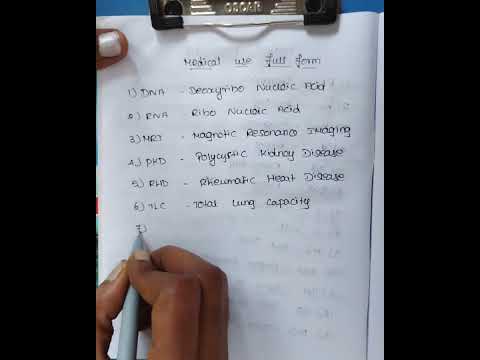 OSCAR
Medical use full form
1) DNA - Deoxyribo Nucleic Acid
2) RNA - Ribo Nucleic Acid
3) MRI - Magnetic Resonance Imaging
4) PKD - Polycystic Kidney Disease
5) RHD - Rheumatic Heat Disease
6) TLC - Total Lung Capacity
7)